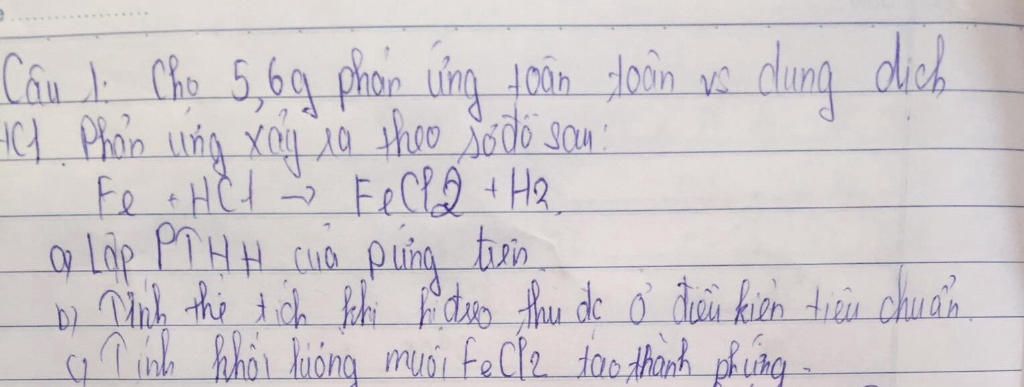 Câu 1. Cho 5,6g phản ứng toàn toàn vs dung dịch
HCl. Phản ứng xảy ra theo sơ đồ sau:
Fe + HCl → FeCl2 + H2
a) Lập PTHH của pứng trên
b) Tính thể tích khí hiđro thu dc ở điều kiện tiêu chuẩn.
c) Tính khối lượng muối FeCl2 tạo thành phứng.